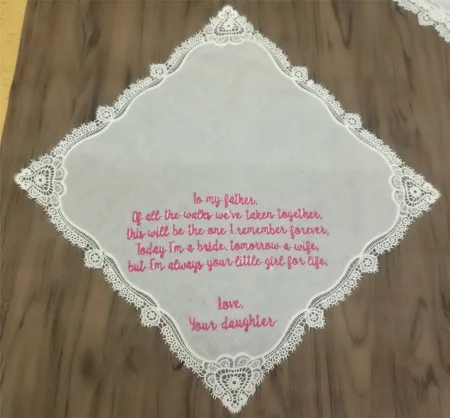 To my father,
Of all the walks we've taken together,
this will be the one I remember forever,
Today I'm a bride, tomorrow a wife,
but I'm always your little girl for life,
Love,
Your daughter